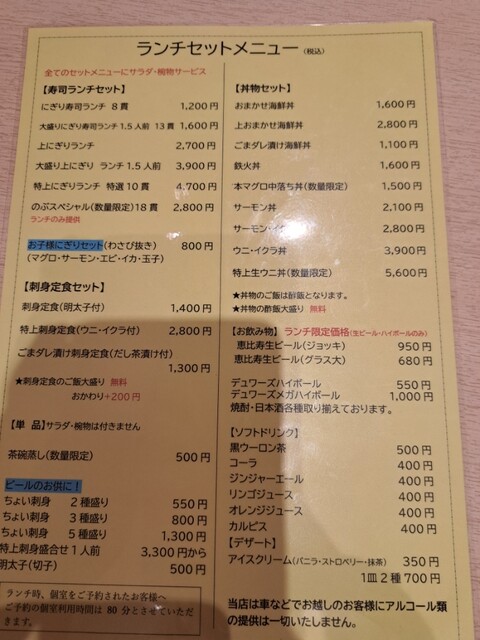 ランチセットメニュー(税込)
全てのセットメニューにサラダ・椀物サービス
【寿司ランチセット】
にぎり寿司ランチ 8貫 1,200円
大盛りにぎり寿司ランチ1.5人前 13貫 1,600円
上にぎりランチ 2,700円
大盛り上にぎり ランチ1.5人前 3,900円
特上にぎりランチ 特選10貫 4,700円
のぶスペシャル(数量限定)18貫 2,800円
ランチのみ提供
お子様にぎりセット(わさび抜き) 800円
(マグロ・サーモン・エビ・イカ・玉子)
【刺身定食セット】
刺身定食(明太子付) 1,400円
特上刺身定食(ウニ・イクラ付) 2,800円
ごまダレ漬け刺身定食(だし茶漬け付)
1,300円
★刺身定食のご飯大盛り 無料
おかわり+200円
【単 品】サラダ・椀物は付きません
茶碗蒸し(数量限定) 500円
ビールのお供に!
ちょい刺身 2種盛り 550円
ちょい刺身 3種盛り 800円
ちょい刺身 5種盛り 1,300円
特上刺身盛合せ1人前 3,300円から
明太子(切子) 500円
ランチ時、個室をご予約されたお客様へ
ご予約の個室利用時間は80分とさせていただ
きます。
【丼物セット】
おまかせ海鮮丼 1,600円
上おまかせ海鮮丼 2,800円
ごまダレ漬け海鮮丼 1,100円
鉄火丼 1,600円
本マグロ中落ち丼(数量限定) 1,500円
サーモン丼 2,100円
サーモン・イ 2,800円
ウニ・イクラ丼 3,900円
特上生ウニ丼(数量限定) 5,600円
★丼物のご飯は酢飯となります。
★丼物の酢飯大盛り 無料
【お飲み物】ランチ限定価格(生ビール・ハイボールのみ)
恵比寿生ビール(ジョッキ) 950円
恵比寿生ビール(グラス大) 680円
デュワーズハイボール 550円
デュワーズメガハイボール 1,000円
焼酎・日本酒各種取り揃えております。
【ソフトドリンク】
黒ウーロン茶 500円
コーラ 400円
ジンジャーエール 400円
リンゴジュース 400円
オレンジジュース 400円
カルピス 400円
【デザート】
アイスクリーム(バニラ・ストロベリー・抹茶) 350円
1皿2種700円
当店は車などでお越しのお客様にアルコール類
の提供は一切いたしません。